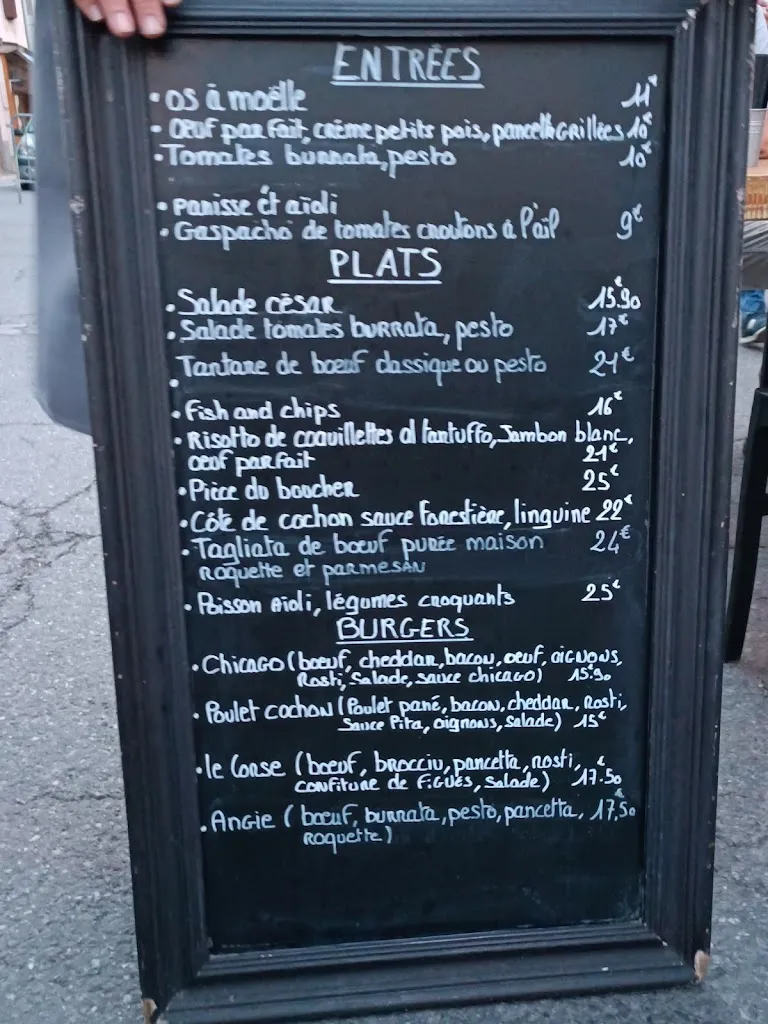 ENTRÉES
• os à moëlle 11€
• Oeuf parfait, crème petits pois, pancetta grillées 10€
• Tomates burrata, pesto 10€
• Panisse et aïoli
• Gaspacho de tomates croutons à l'ail 9€
PLATS
• Salade césar 15.90€
• Salade tomates burrata, pesto 17€
• Tartare de boeuf classique ou pesto 21€
• Fish and chips 16€
• Risotto de coquillettes al tartuffo, Jambon blanc,
oeuf parfait 21€
• Pièce du boucher 25€
• Côte de cochon sauce Forestière, linguine 22€
• Tagliata de boeuf purée maison 24€
roquette et parmesan
• Poisson Aïoli, légumes croquants 25€
BURGERS
• Chicago (boeuf, cheddar, bacon, oeuf, oignons,
Rosti, Salade, sauce chicago) 15.90
• Poulet cochon (Poulet pané, bacon, cheddar, Rosti,
Sauce Pita, oignons, Salade) 15€
• le Corse (boeuf, brocciu, pancetta, rosti,
confiture de figues, salade) 17.50€
• Angie (boeuf, burrata, pesto, pancetta, 17,50€
Roquette)